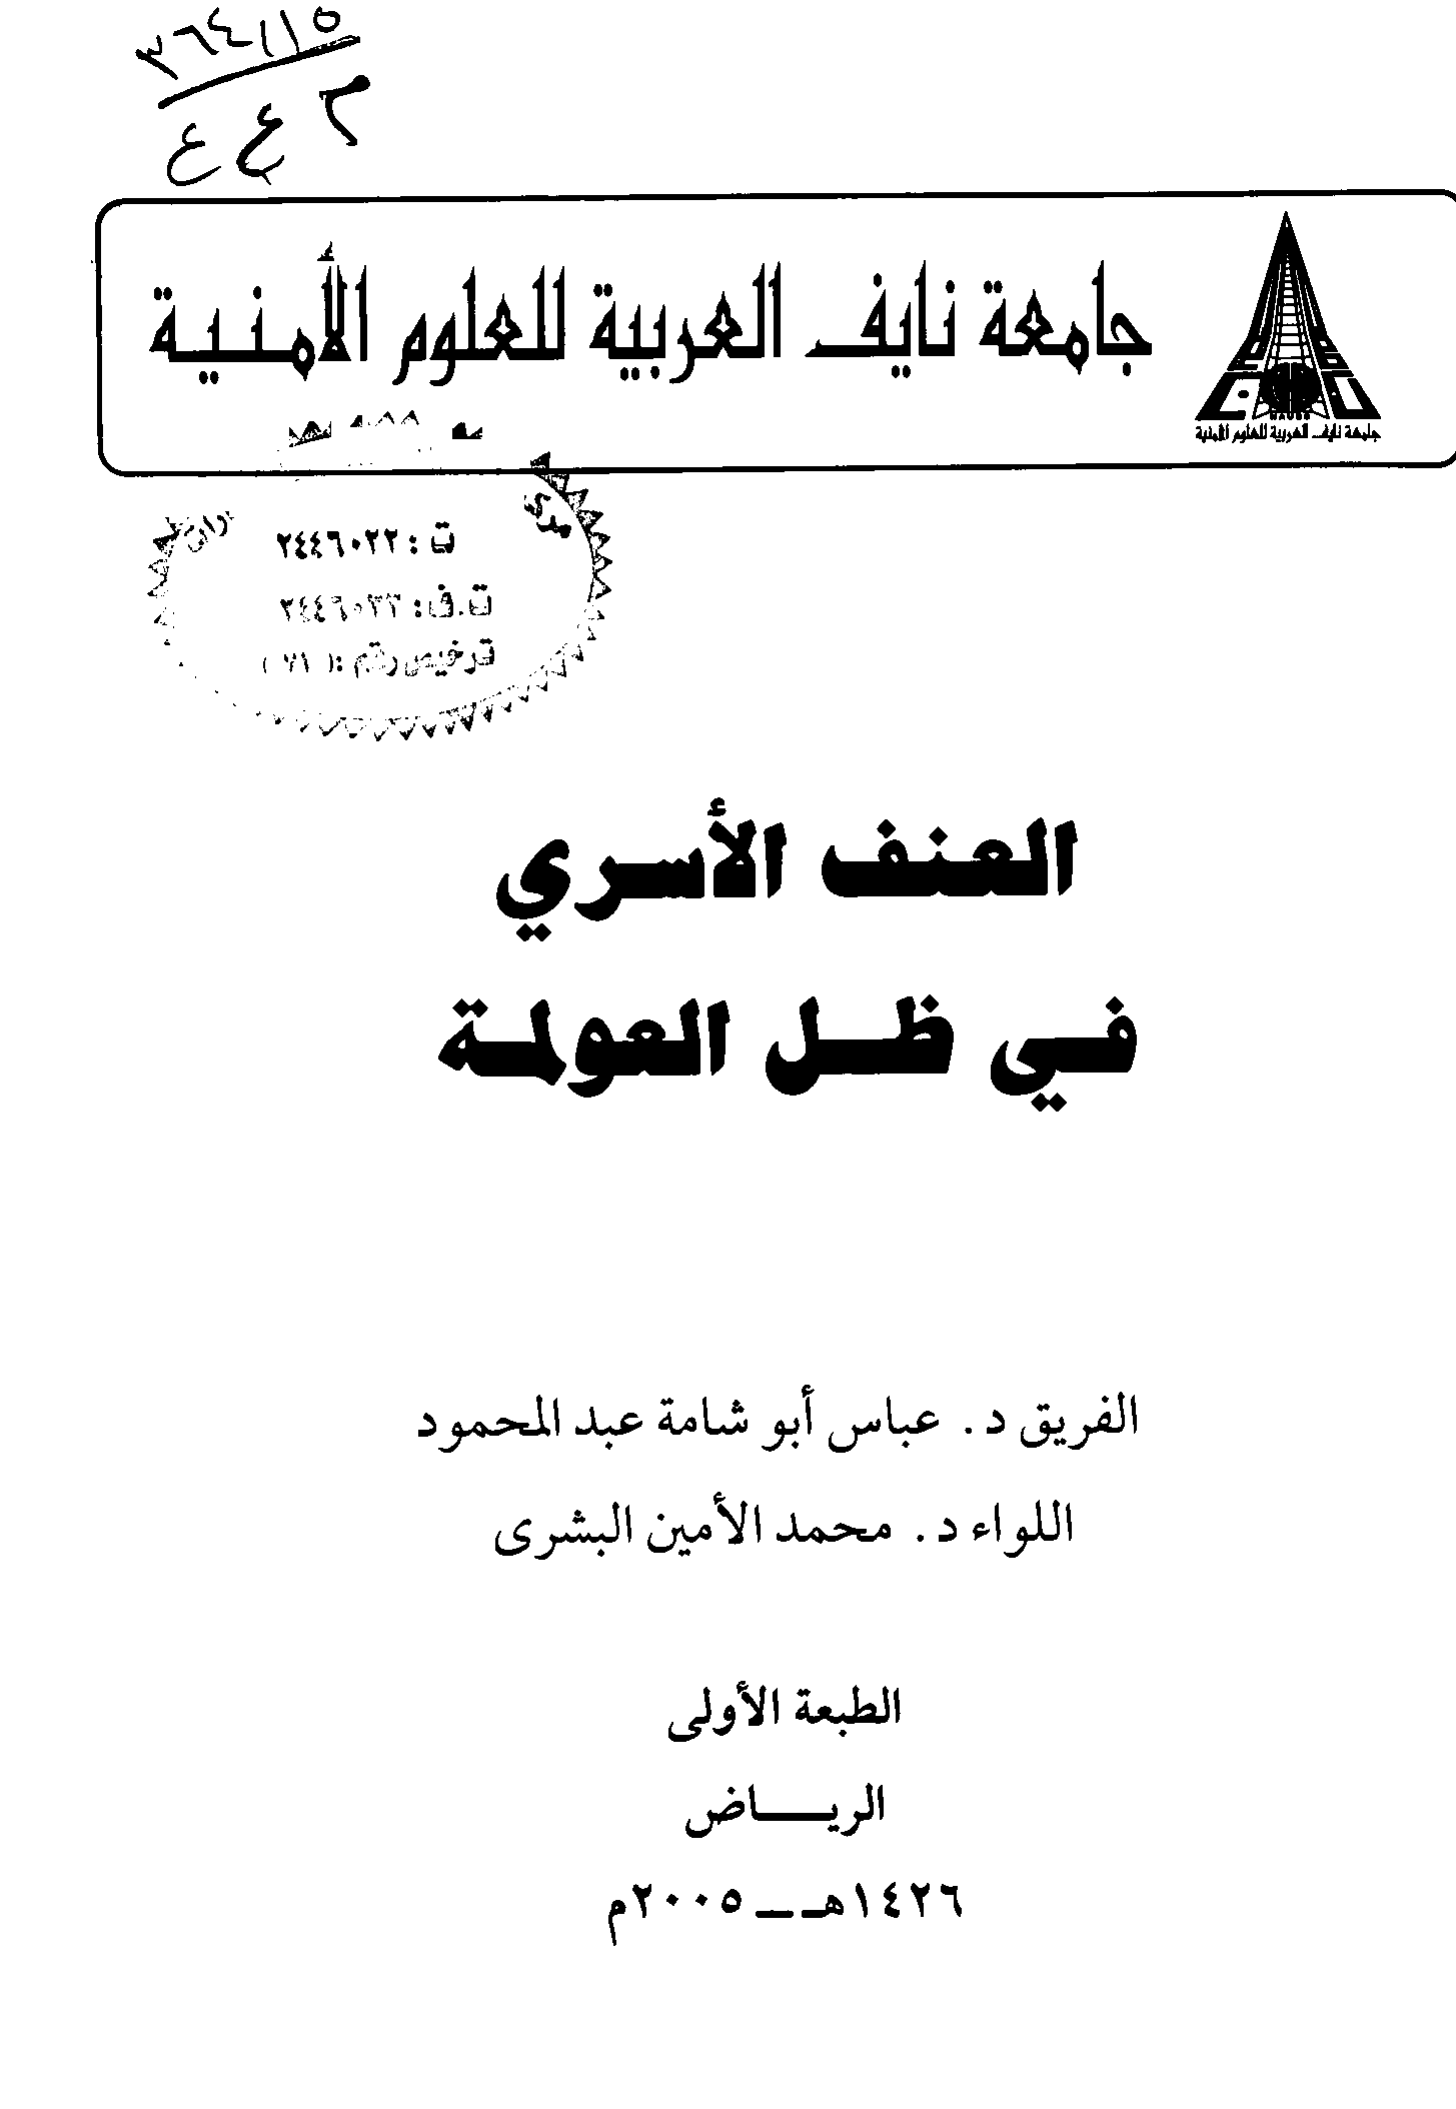 ٣٦٤,١١٥
ع ع م
جامعة نايف العربية للعلوم الأمنية
جامعة نايف العربية للعلوم الأمنية
ت : ٢٤٤٦٠٢٢
ت.ف : ٢٤٤٦٠٣٣
ترخيص رقم : ( ٧١ )
العنف الأسري
في ظل العولمة
الفريق د. عباس أبو شامة عبد المحمود
اللواء د. محمد الأمين البشرى
الطبعة الأولى
الرياض
١٤٢٦هـ ــ ٢٠٠٥م